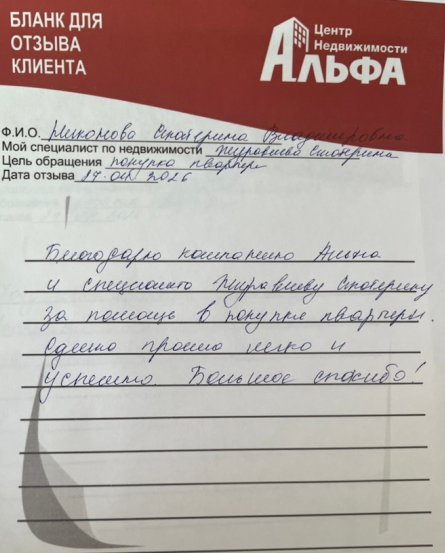 БЛАНК ДЛЯ
ОТЗЫВА
КЛИЕНТА
Центр
Недвижимости
АЛЬФА
Ф.И.О. Никонова Екатерина Владимировна
Мой специалист по недвижимости Журавлева Екатерина
Цель обращения покупка квартиры
Дата отзыва 2026
Благодарю компанию Альфа
и специалиста Журавлеву Екатерину
за помощь в покупке квартиры.
Сделка прошла легко и
успешно. Большое спасибо!